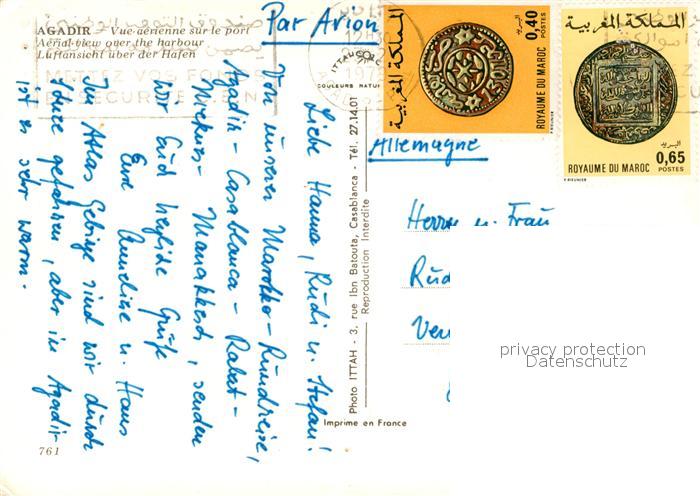 AGADIR — Vue aérienne sur le port
Aérial-view over the harbour
Luftansicht über der Hafen
Par Avion
METTEZ VOS FONDS
COULEURS NATUR
المملكة المغربية
البريد
0,40
POSTES
ROYAUME DU MAROC
المملكة المغربية
البريد
0,65
POSTES
ROYAUME DU MAROC
Liebe Hanna, Rudi u. Stefan!
Von unserer Marokko-Rundreise,
Agadir - Casablanca - Rabat -
Meknes - Marakkesch, senden
wir Euch herzliche Grüße
Eure
Anneliese u. Hans
Im Atlas Gebirge sind wir durch
gefahren, aber in Agadir
ist es sehr warm.
Photo ITTAH - 3, rue Ibn Batouta, Casablanca - Tél. 27.14.01
Reproduction Interdite
Allemagne
Herrn u. Frau
Imprime en France
761
privacy protection
Datenschutz